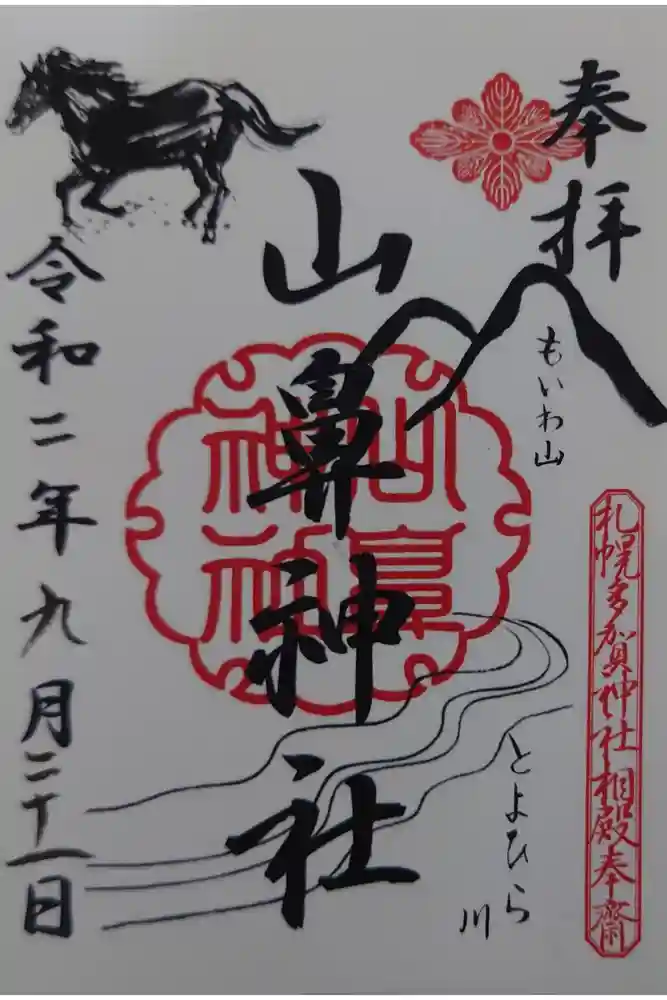 奉拝
もいわ山
札幌多賀神社相殿奉齋
とよひら川
山鼻神社
山鼻神社
令和二年九月二十一日